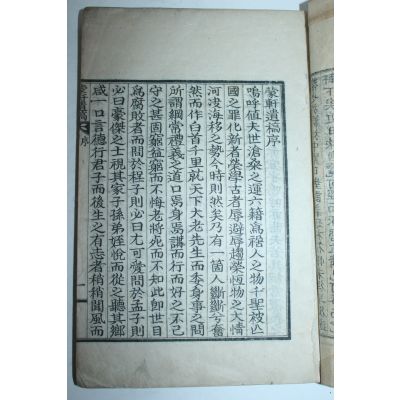 蒙軒遺稿序
嗚呼値夫世滄桑之運六籍爲禍人之物千聖被凶
國之罪化新者榮學古者辱避辱趨榮恆物之大情
河渡海移之勢今時則然矣乃有一箇人斷斷兮奮
然而作白首千里就天下大老先生而委身事之問
所謂綱常禮義之道口焉身焉講而行而好之不已
守之甚固窮益窮而不悔老將死而不知此卽世目
爲腐敗者而問於程子則必曰尤可愛問於孟子則
必曰豪傑之士視其家子孫弟姪悅而從之聽其鄕
咸一口言德行君子而後生之有志者稍稍聞風而
序
一